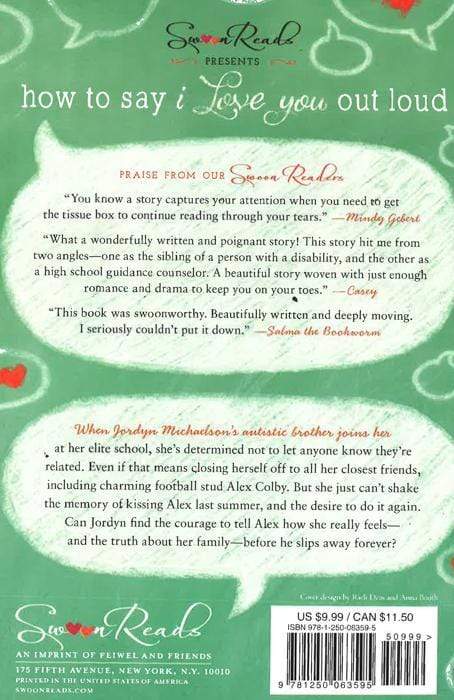 Swoon Reads
PRESENTS
how to say i Love you out loud
PRAISE FROM OUR Swoon Readers
“You know a story captures your attention when you need to get
the tissue box to continue reading through your tears.” —Mindy Gebert
“What a wonderfully written and poignant story! This story hit me from
two angles—one as the sibling of a person with a disability, and the other as
a high school guidance counselor. A beautiful story woven with just enough
romance and drama to keep you on your toes.” —Casey
“This book was swoonworthy. Beautifully written and deeply moving.
I seriously couldn't put it down.” —Salma the Bookworm
When Jordyn Michaelson's autistic brother joins her
at her elite school, she's determined not to let anyone know they're
related. Even if that means closing herself off to all her closest friends,
including charming football stud Alex Colby. But she just can't shake
the memory of kissing Alex last summer, and the desire to do it again.
Can Jordyn find the courage to tell Alex how she really feels—
and the truth about her family—before he slips away forever?
Cover design by Rich Deas and Anna Booth
Swoon Reads
AN IMPRINT OF FEIWEL AND FRIENDS
175 FIFTH AVENUE, NEW YORK, N.Y. 10010
PRINTED IN THE UNITED STATES OF AMERICA
SWOONREADS.COM
US $9.99 / CAN $11.50
ISBN 978-1-250-06359-5
50999>
9 781250 063595